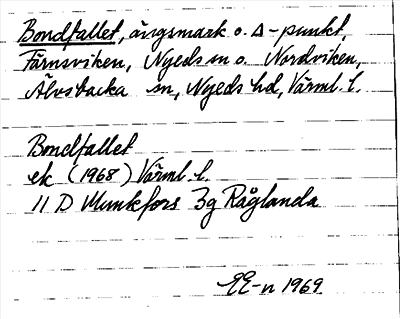 Bondfallet, ängsmark o. Δ-punkt,
Tärnsviken, Nyeds sn o. Nordviken,
Älvsbacka sn, Nyeds hd, Värml. l.
Bondfallet
ek (1968) Värml. l.
11 D Munkfors 3g Råglanda
EE-n 1969